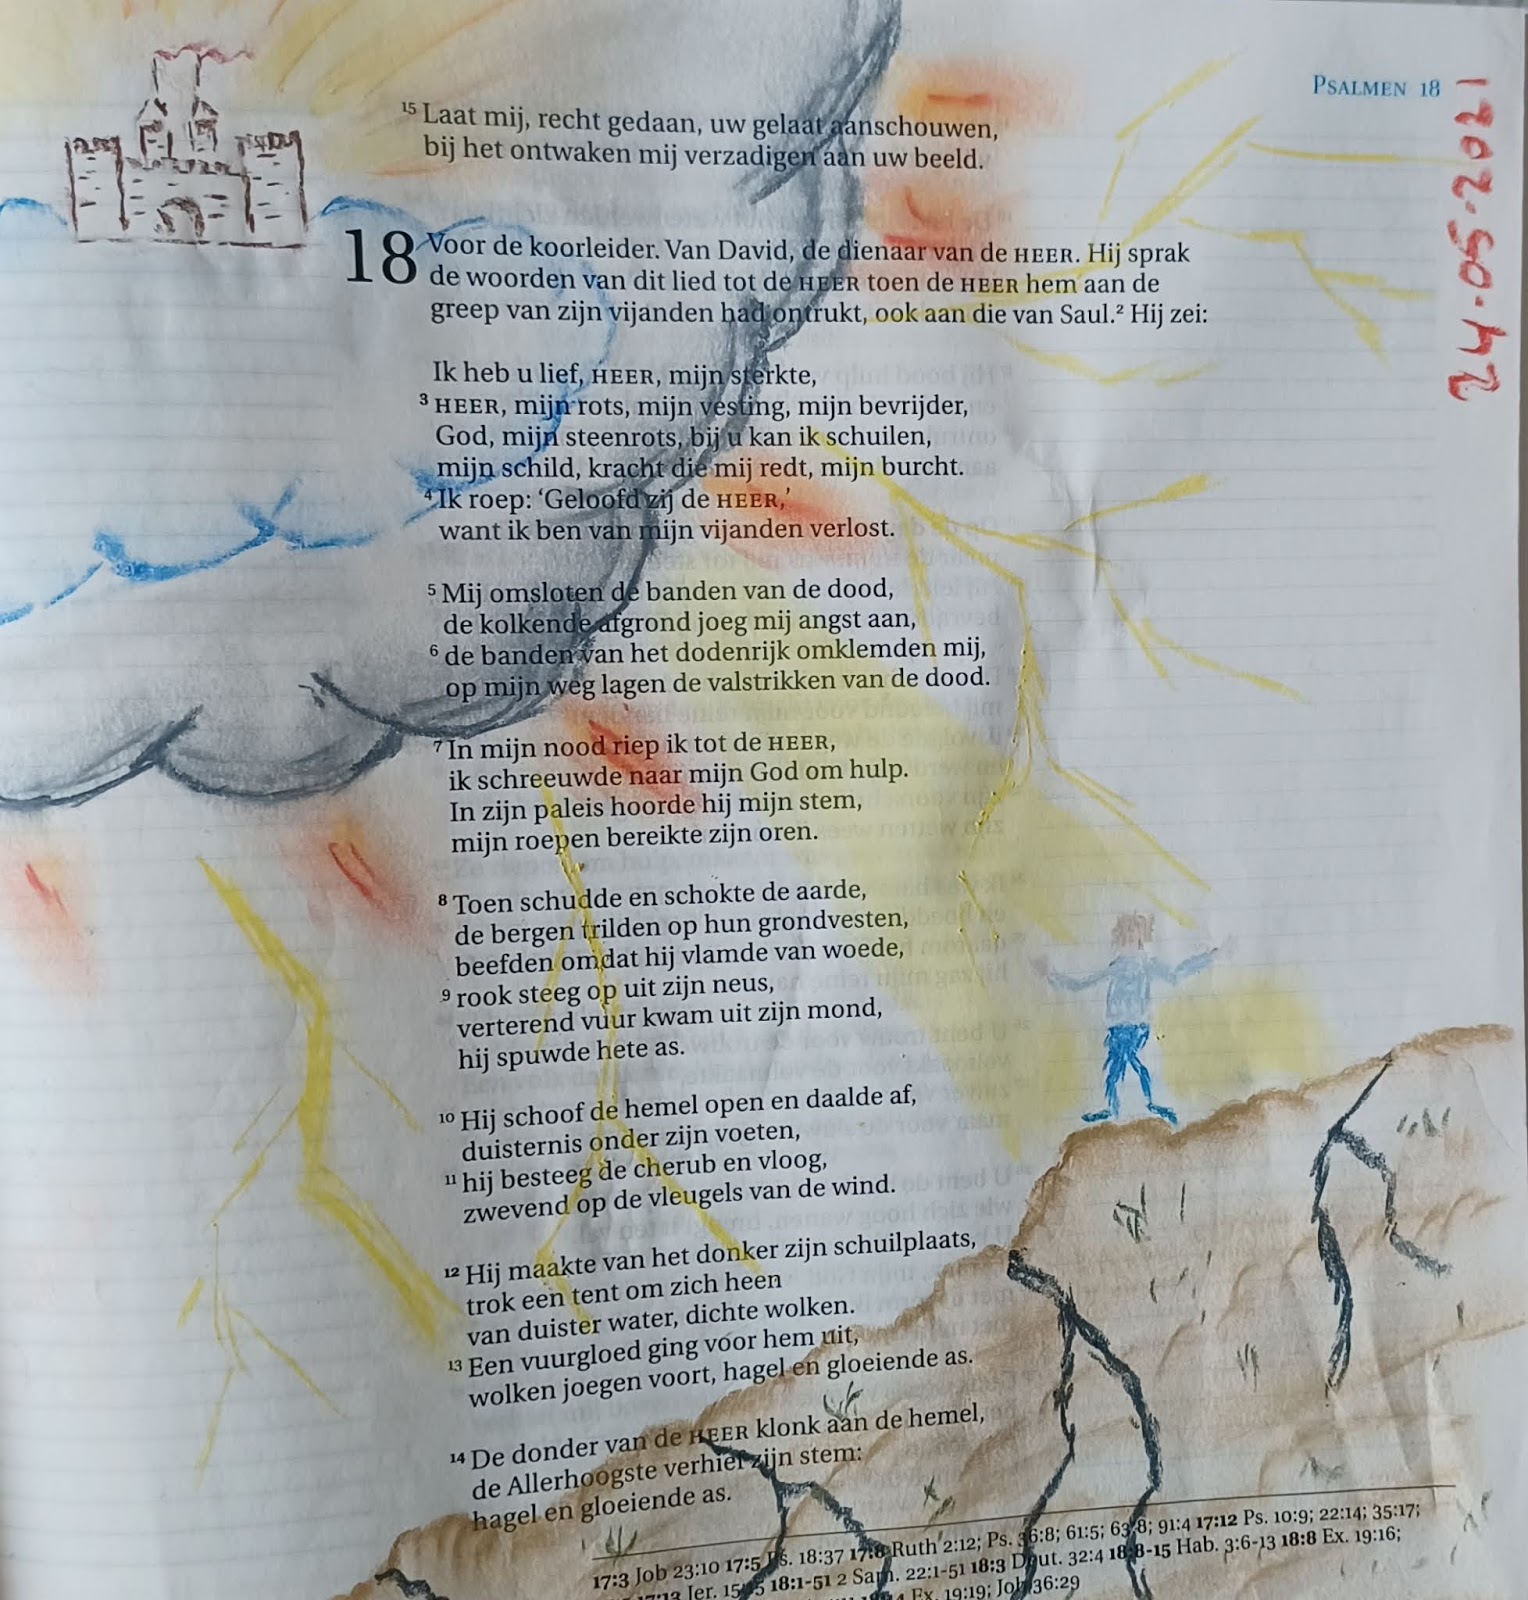 PSALMEN 18
24-05-2021
15 Laat mij, recht gedaan, uw gelaat aanschouwen,
bij het ontwaken mij verzadigen aan uw beeld.
18 Voor de koorleider. Van David, de dienaar van de HEER. Hij sprak
de woorden van dit lied tot de HEER toen de HEER hem aan de
greep van zijn vijanden had ontrukt, ook aan die van Saul.² Hij zei:
Ik heb u lief, HEER, mijn sterkte,
3 HEER, mijn rots, mijn vesting, mijn bevrijder,
God, mijn steenrots, bij u kan ik schuilen,
mijn schild, kracht die mij redt, mijn burcht.
4 Ik roep: ‘Geloofd zij de HEER,’
want ik ben van mijn vijanden verlost.
5 Mij omsloten de banden van de dood,
de kolkende afgrond joeg mij angst aan,
6 de banden van het dodenrijk omklemden mij,
op mijn weg lagen de valstrikken van de dood.
7 In mijn nood riep ik tot de HEER,
ik schreeuwde naar mijn God om hulp.
In zijn paleis hoorde hij mijn stem,
mijn roepen bereikte zijn oren.
8 Toen schudde en schokte de aarde,
de bergen trilden op hun grondvesten,
beefden omdat hij vlamde van woede,
9 rook steeg op uit zijn neus,
verterend vuur kwam uit zijn mond,
hij spuwde hete as.
10 Hij schoof de hemel open en daalde af,
duisternis onder zijn voeten,
11 hij besteeg de cherub en vloog,
zwevend op de vleugels van de wind.
12 Hij maakte van het donker zijn schuilplaats,
trok een tent om zich heen
van duister water, dichte wolken.
13 Een vuurgloed ging voor hem uit,
wolken joegen voort, hagel en gloeiende as.
14 De donder van de HEER klonk aan de hemel,
de Allerhoogste verhief zijn stem:
hagel en gloeiende as.
17:3 Job 23:10 17:5 Ps. 18:37 17:8 Ruth 2:12; Ps. 36:8; 61:5; 63:8; 91:4 17:12 Ps. 10:9; 22:14; 35:17;
Jer. 18:1-51 2 Sam. 22:1-51 18:3 Deut. 32:4 18:8-15 Hab. 3:6-13 18:8 Ex. 19:16;
Ex. 19:19; Job 36:29